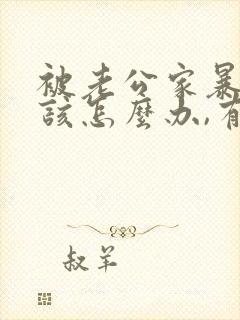 被老公家暴
该怎麼办,有
叔羊